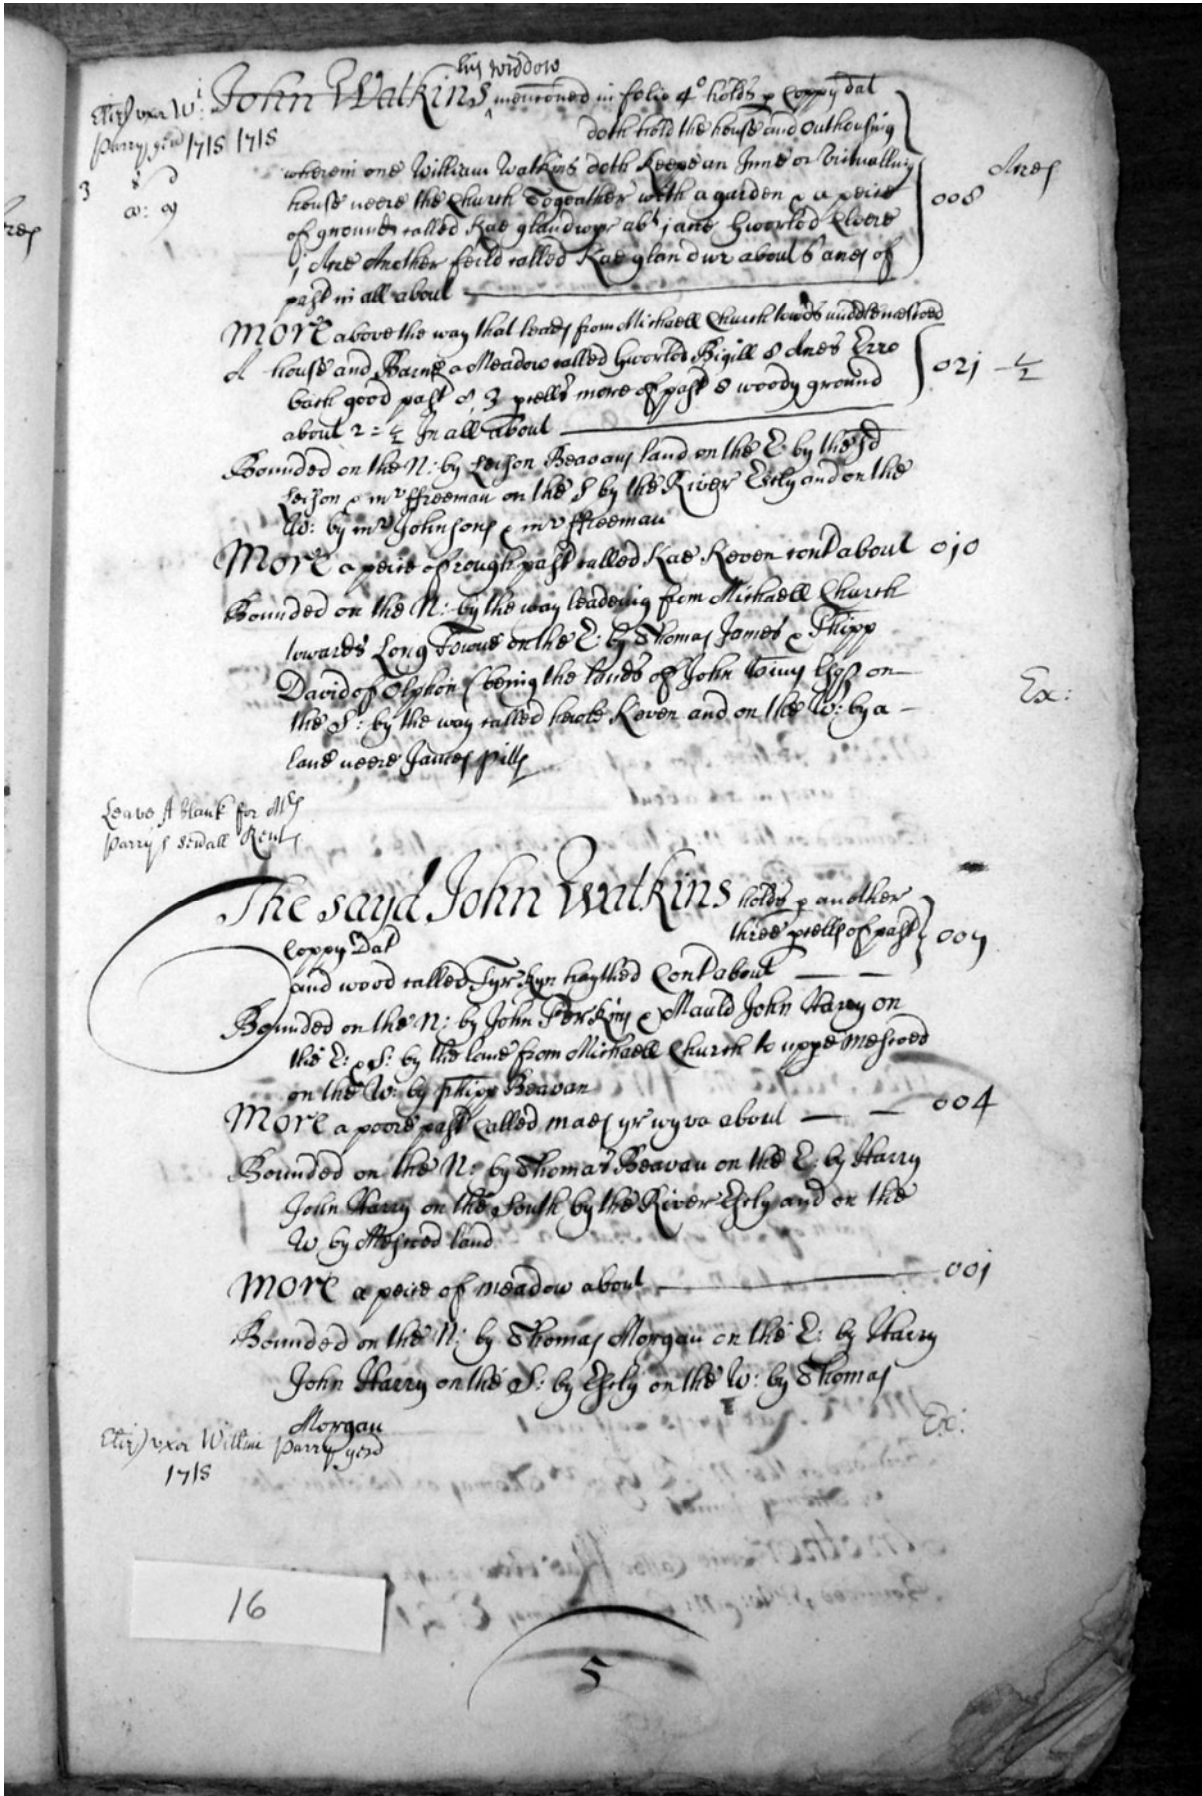 his widdow
Eliz) uxor Wi:
Parry gen) 1718 1718
John Watkins mentioned in folio 4o holds p Coppy dat
doth hold the house and outhousing
wherein one William Watkins doth Keepe an Inne or Victualling
house neere the Church Togeather with a garden & a peice
of ground called Kae glandwyr abt j acre
j Acre Another feild called Kae glandwr about 6 acres of
past in all about
008
Acres
3
s d
More above the way that leads from Michaell Church towds
A house and Barne a Meadow called Gworlod Bigill 8 Acres Erro
back good past & 3 pcells more of past & woody ground
about 2 = 1/2 In all about
021 1/2
Bounded on the N: by Leison Beavans land on the E: by the sd
Leison & mr ffreeman on the S by the River Eskly and on the
W: by mr Johnsons & mr ffreeman
More a peice of rough past called Kae Keven cont about 010
Bounded on the N: by the way leadeing from Michaell Church
towards Long Towne on the E: by Thomas James & Phipp
David of Olchon (being the lands of John Esqr on
the S: by the way called Keven and on the W: by a
lane neere James pills
Ex:
Leave A blank for Mrs
Parrys Rents
The sayd John Watkins holds p another
Coppy Dat three pcells of past
and wood called Tyr Cont about
007
Bounded on the N: by John Perkins & Mauld John Harry on
the E: & S: by the lane from Michaell Church to uppe mescoed
on the W: by Phipp Beavan
More a poore past Called maes yr wyva about 004
Bounded on the N: by Thomas Beavan on the E: by Harry
John Harry on the South by the River Eskly and on the
W by Mescoed land
More a peice of meadow about 001
Bounded on the N: by Thomas Morgan on the E: by Harry
John Harry on the S: by Eskly on the W: by Thomas
Morgan
Ex:
Eliz) uxor Willim Parry gend
1718
16
5